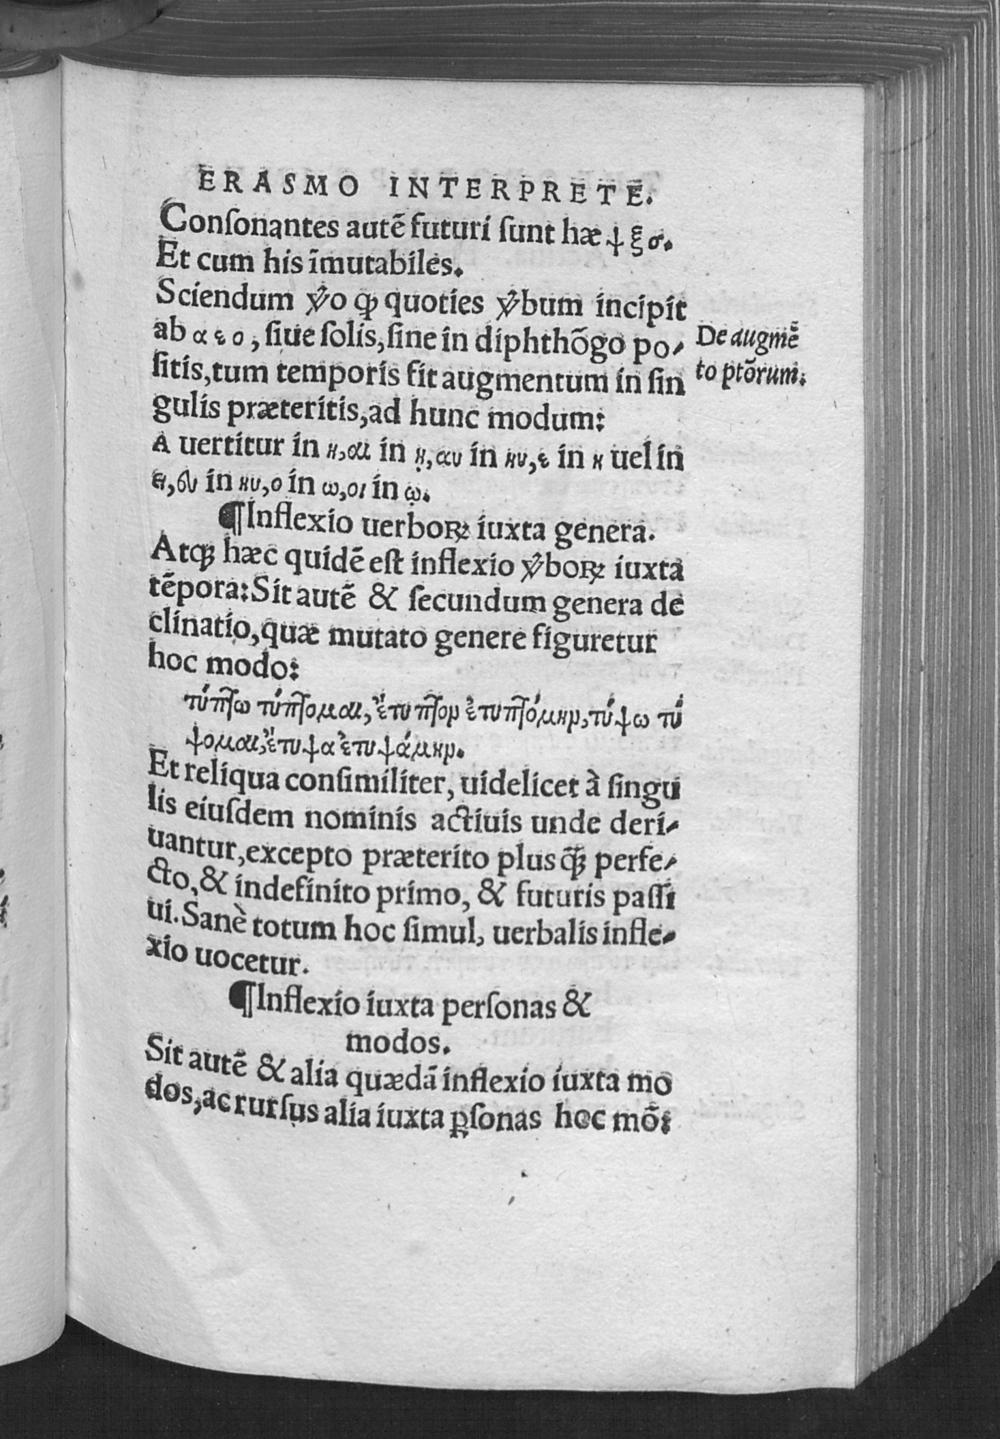 ERASMO INTERPRETE.
Conſonantes autē futuri ſunt hæ ψ ξ σ.
Et cum his īmutabiles.
Sciendum ꝟo ꝙ quoties ꝟbum incipit
ab α ε ο, ſiue ſolis, ſine in diphthōgo po-
ſitis, tum temporis fit augmentum in ſin
gulis præteritis, ad hunc modum:
A uertitur in η, αι in ῃ, αυ in ηυ, ε in η uel in
ει, ευ in ηυ, ο in ω, οι in ῳ.
¶Inflexio uerboꝝ iuxta genera.
Atqꝫ hæc quidē eſt inflexio ꝟboꝝ iuxta
tēpora: Sit autē & ſecundum genera de
clinatio, quæ mutato genere figuretur
hoc modo:
τύπτω τύπτομαι, ἔτυπτον ἐτυπτόμην, τύψω τύ
ψομαι, ἔτυψα ἐτυψάμην.
Et reliqua conſimiliter, uidelicet à ſingu
lis eiuſdem nominis actiuis unde deri-
uantur, excepto præterito plus qꝫ̄ perfe-
cto, & indefinito primo, & futuris paſſi
ui. Sanè totum hoc ſimul, uerbalis infle-
xio uocetur.
¶Inflexio iuxta perſonas &
modos.
Sit autē & alia quædā inflexio iuxta mo
dos, ac rurſus alia iuxta ꝑſonas hoc mō:
De augmē
to ptōrum.